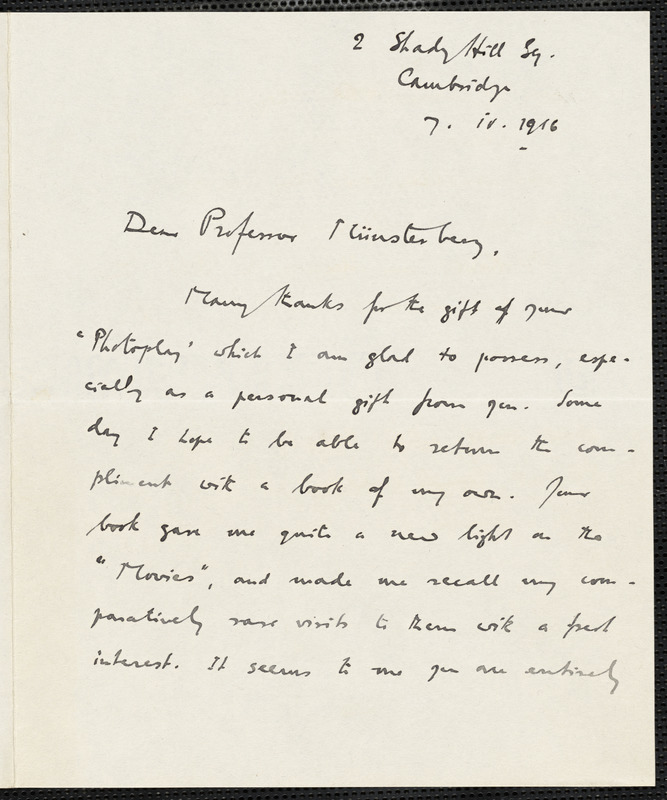 2 Shady Hill Sq.
Cambridge
7. iv. 1916
Dear Professor Münsterberg,
Many thanks for the gift of your
"Photoplay" which I am glad to possess, espe-
cially as a personal gift from you. Some
day I hope to be able to return the com-
pliment with a book of my own. Your
book gave me quite a new light on the
"Movies", and made me recall my com-
paratively rare visits to them with a fresh
interest. It seems to me you are entirely